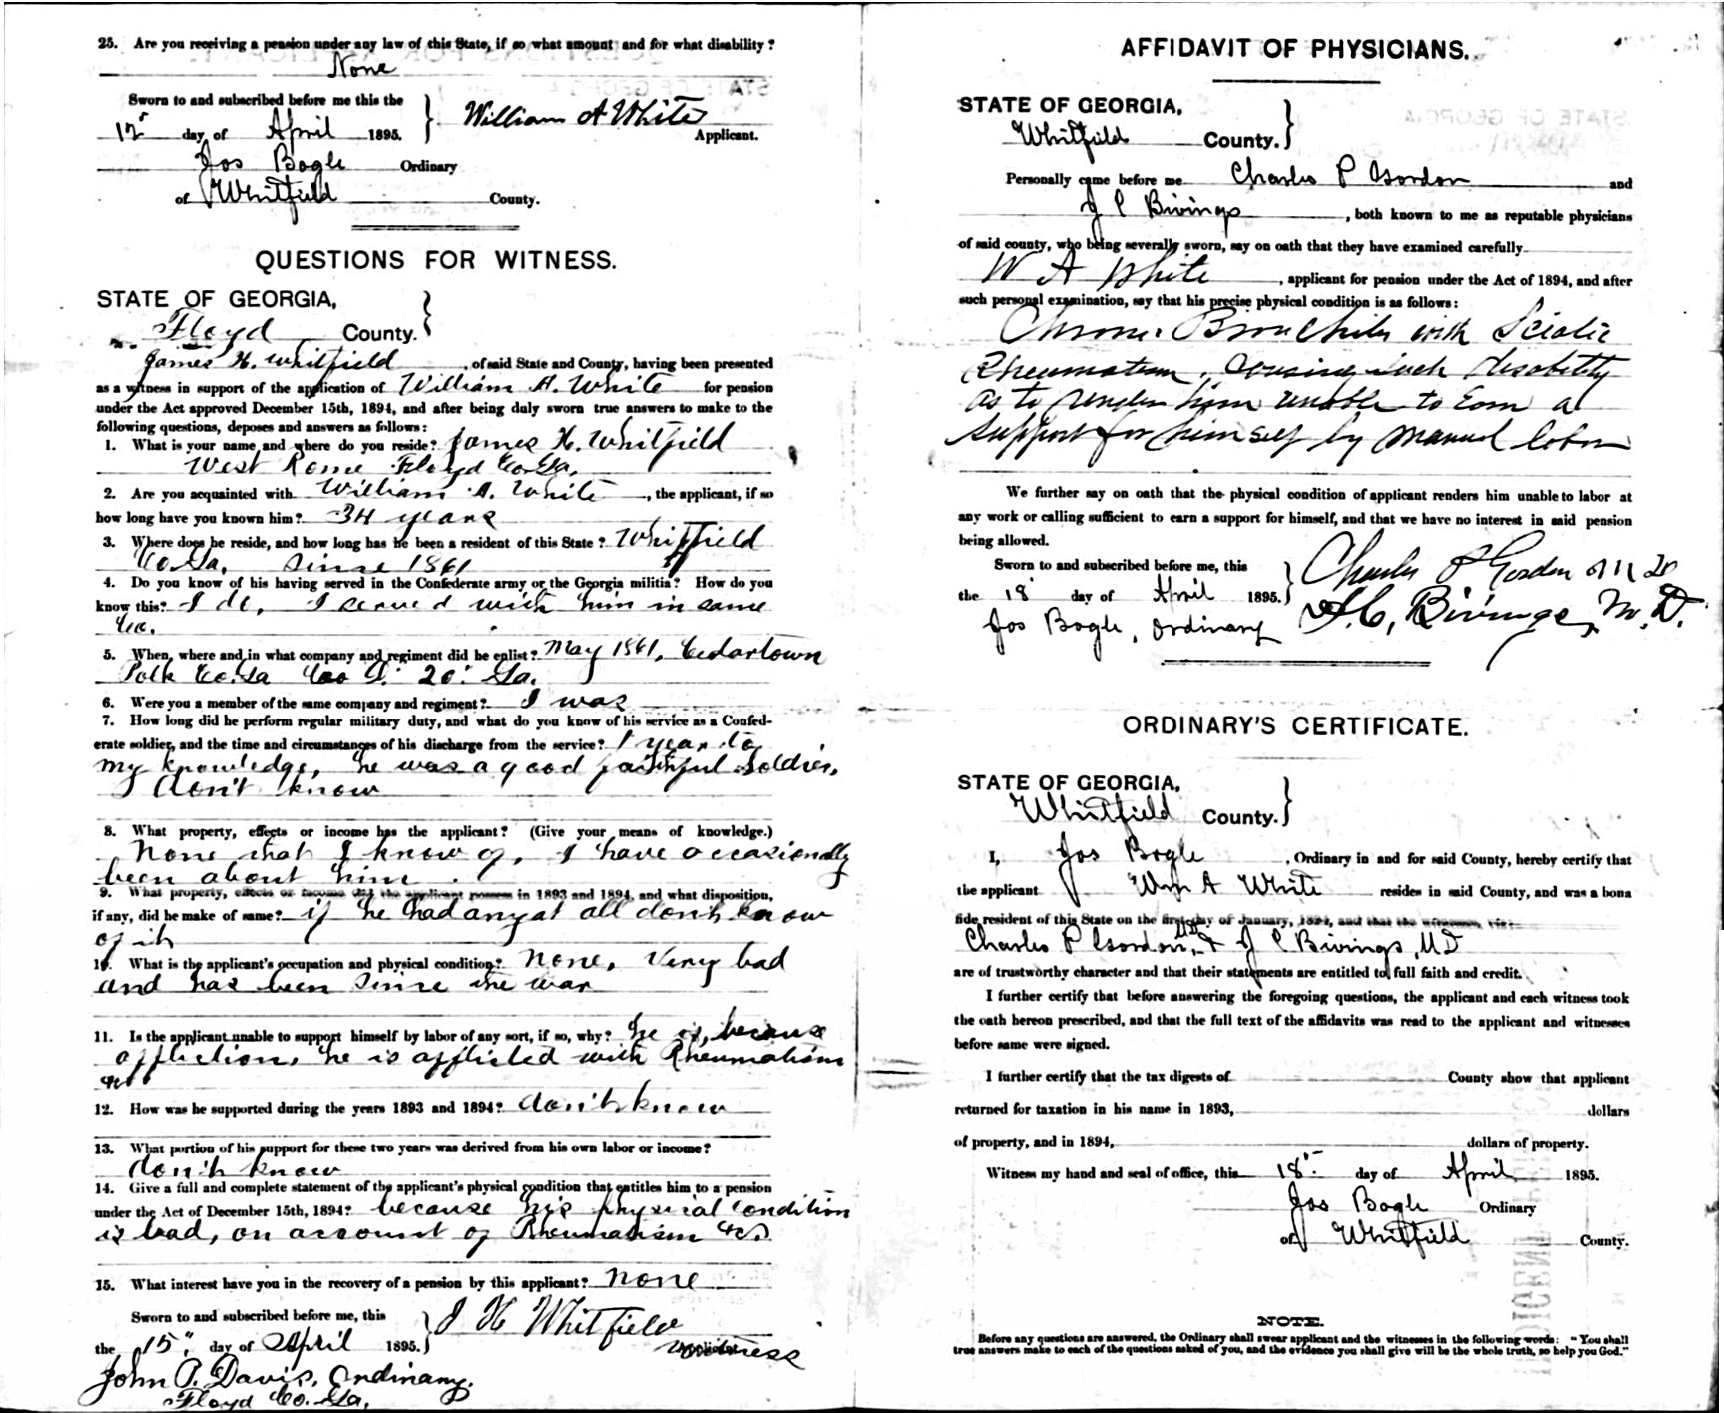 25. Are you receiving a pension under any law of this State, if so what amount and for what disability?
None
Sworn to and subscribed before me this the
12" day of April 1895.
William A White
Applicant.
Jos Bogle Ordinary
of Whitfield County.
QUESTIONS FOR WITNESS.
STATE OF GEORGIA,
Floyd County.
James H. Whitfield, of said State and County, having been presented
as a witness in support of the application of William A. White for pension
under the Act approved December 15th, 1894, and after being duly sworn true answers to make to the
following questions, deposes and answers as follows:
1. What is your name and where do you reside? James H. Whitfield
West Rome Floyd Co. Ga.
2. Are you acquainted with William A. White, the applicant, if so
how long have you known him? 34 years
3. Where does he reside, and how long has he been a resident of this State? Whitfield
Co. Ga. Since 1861
4. Do you know of his having served in the Confederate army or the Georgia militia? How do you
know this? I do, I served with him in same
Co.
5. When, where and in what company and regiment did he enlist? May 1861, Cedartown
Polk Co. Ga Co D. 20. Ga.
6. Were you a member of the same company and regiment? I was
7. How long did he perform regular military duty, and what do you know of his service as a Confed-
erate soldier, and the time and circumstances of his discharge from the service? 1 year to
my knowledge, he was a good faithful soldier,
I don't know
8. What property, effects or income has the applicant? (Give your means of knowledge.)
None that I know of, I have occasionally
been about him.
9. What property, effects or income did the applicant possess in 1893 and 1894, and what disposition,
if any, did he make of same? if he had any at all don't know
of it
10. What is the applicant's occupation and physical condition? None, Very bad
and has been since the war
11. Is the applicant unable to support himself by labor of any sort, if so, why? he is, because
affliction, he is afflicted with Rheumatism
&c
12. How was he supported during the years 1893 and 1894? don't know
13. What portion of his support for these two years was derived from his own labor or income?
don't know
14. Give a full and complete statement of the applicant's physical condition that entitles him to a pension
under the Act of December 15th, 1894? because his physical condition
is bad, on account of Rheumatism &c.
15. What interest have you in the recovery of a pension by this applicant? None
Sworn to and subscribed before me, this
the 15" day of April 1895.
J H Whitfield
Witness
John P. Davis, Ordinary.
Floyd Co. Ga.
AFFIDAVIT OF PHYSICIANS.
STATE OF GEORGIA,
Whitfield County.
Personally came before me Charles P Gordon and
J C Bivings, both known to me as reputable physicians
of said county, who being severally sworn, say on oath that they have examined carefully
W A White, applicant for pension under the Act of 1894, and after
such personal examination, say that his precise physical condition is as follows:
Chronic Bronchitis with Sciatic
Rheumatism, causing such disability
as to render him unable to Earn a
support for himself by manual labor
We further say on oath that the physical condition of applicant renders him unable to labor at
any work or calling sufficient to earn a support for himself, and that we have no interest in said pension
being allowed.
Sworn to and subscribed before me, this
the 18 day of April 1895.
Charles P Gordon M D
J. C. Bivings, M. D.
Jos Bogle, Ordinary
ORDINARY'S CERTIFICATE.
STATE OF GEORGIA,
Whitfield County.
I, Jos Bogle, Ordinary in and for said County, hereby certify that
the applicant Wm A White resides in said County, and was a bona
fide resident of this State on the first day of January, 1894, and that the witnesses, viz:
Charles P Gordon, MD & J C Bivings, MD
are of trustworthy character and that their statements are entitled to full faith and credit.
I further certify that before answering the foregoing questions, the applicant and each witness took
the oath hereon prescribed, and that the full text of the affidavits was read to the applicant and witnesses
before same were signed.
I further certify that the tax digests of County show that applicant
returned for taxation in his name in 1893, dollars
of property, and in 1894, dollars of property.
Witness my hand and seal of office, this 18" day of April 1895.
Jos Bogle Ordinary
of Whitfield County.
NOTE.
Before any questions are answered, the Ordinary shall swear applicant and the witnesses in the following words: "You shall
true answers make to each of the questions asked of you, and the evidence you shall give will be the whole truth, so help you God."